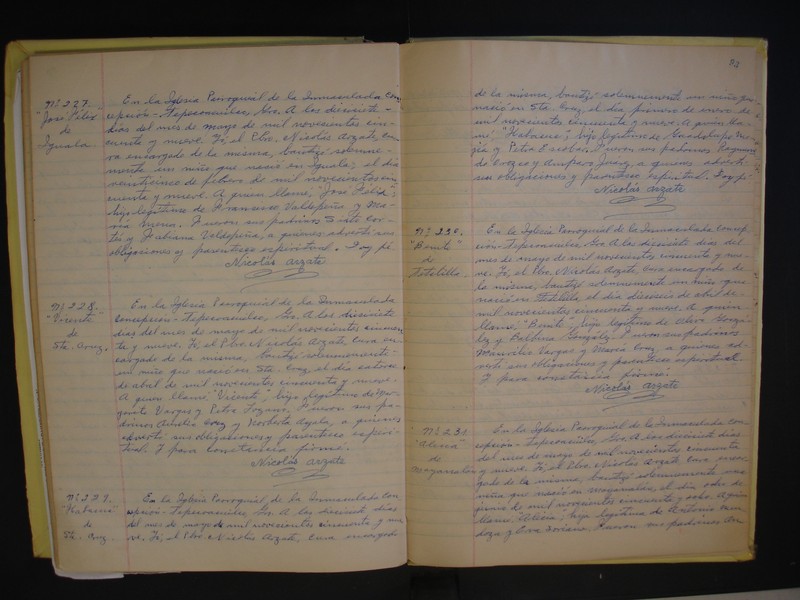 Nº 227.
"José Félix"
de
Iguala.
En la Iglesia Parroquial de la Inmaculada Con
cepción - Tepecoacuilco, Gro. A los diecisiete -
días del mes de mayo de mil novecientos cin-
cuenta y nueve. Yó, el Pbro. Nicolás Arzate, cu-
ra encargado de la misma, bauticé solemne-
mente un niño que nació en Iguala, el día
veinticinco de febrero de mil novecientos cin-
cuenta y nueve. A quien llamé, "José Félix",
hijo legítimo de Francisco Valdepeña y Ma-
ría Mena. Fueron sus padrinos Sixto Cor-
tés y Fabiana Valdepeña, a quienes advertí sus
obligaciones y parentesco espiritual. Doy fé
Nicolás Arzate
Nº 228.
"Vicente"
de
Sta. Cruz.
En la Iglesia Parroquial de la Inmaculada
Concepción - Tepecoacuilco, Gro. A los diecisiete
días del mes de mayo de mil novecientos cincuen
ta y nueve. Yó, el Pbro. Nicolás Arzate, cura en-
cargado de la misma, bauticé solemnemente -
un niño que nació en Sta. Cruz, el día catorce
de abril de mil novecientos cincuenta y nueve -
A quien llamé, "Vicente", hijo legítimo de Mar-
garito Vargas y Petra Lozano. Fueron sus pa-
drinos Amelia Cruz y Norberto Ayala, a quienes
advertí sus obligaciones y parentesco espiri-
tual. Y para constancia firmé.
Nicolás Arzate
Nº 229.
de
Sta. Cruz.
En la Iglesia Parroquial de la Inmaculada Con
cepción - Tepecoacuilco, Gro. A los diecisiete días
del mes de mayo de mil novecientos cincuenta y nue
ve. Yó, el Pbro. Nicolás Arzate, cura encargado
de la misma, bauticé solemnemente un niño que
nació en Sta. Cruz, el día primero de enero de
mil novecientos cincuenta y nueve. A quien lla-
mé, hijo legítimo de Guadalupe Me-
jía y Petra Escobar. Fueron sus padrinos Raymundo
de Orozco y Amparo Juárez, a quienes advertí
sus obligaciones y parentesco espiritual. Doy fé
Nicolás Arzate
Nº 230.
"Bonit"
de
Tototilla.
En la Iglesia Parroquial de la Inmaculada Concep
ción - Tepecoacuilco, Gro. A los diecisiete días del
mes de mayo de mil novecientos cincuenta y nue-
ve. Yó, el Pbro. Nicolás Arzate, cura encargado de
la misma, bauticé solemnemente un niño que
nació en el día dieciocho de abril de
mil novecientos cincuenta y nueve. A quien
llamé, hijo legítimo de Gonzá-
lez y Balbina González. Fueron sus padrinos
Vargas y María Cruz, a quienes ad-
vertí sus obligaciones y parentesco espiritual.
Y para constancia firmé.
Nicolás Arzate
Nº 231.
"Alicia"
de
En la Iglesia Parroquial de la Inmaculada Con
cepción - Tepecoacuilco, Gro. A los diecisiete días
del mes de mayo de mil novecientos cincuenta
y nueve. Yó, el Pbro. Nicolás Arzate, cura encar-
gado de la misma, bauticé solemnemente una
niña que nació en el día ocho de
junio de mil novecientos cincuenta y ocho. A quien
llamé, "Alicia", hija legítima de Antonio Men-
doza y Eva Soriano. Fueron sus padrinos